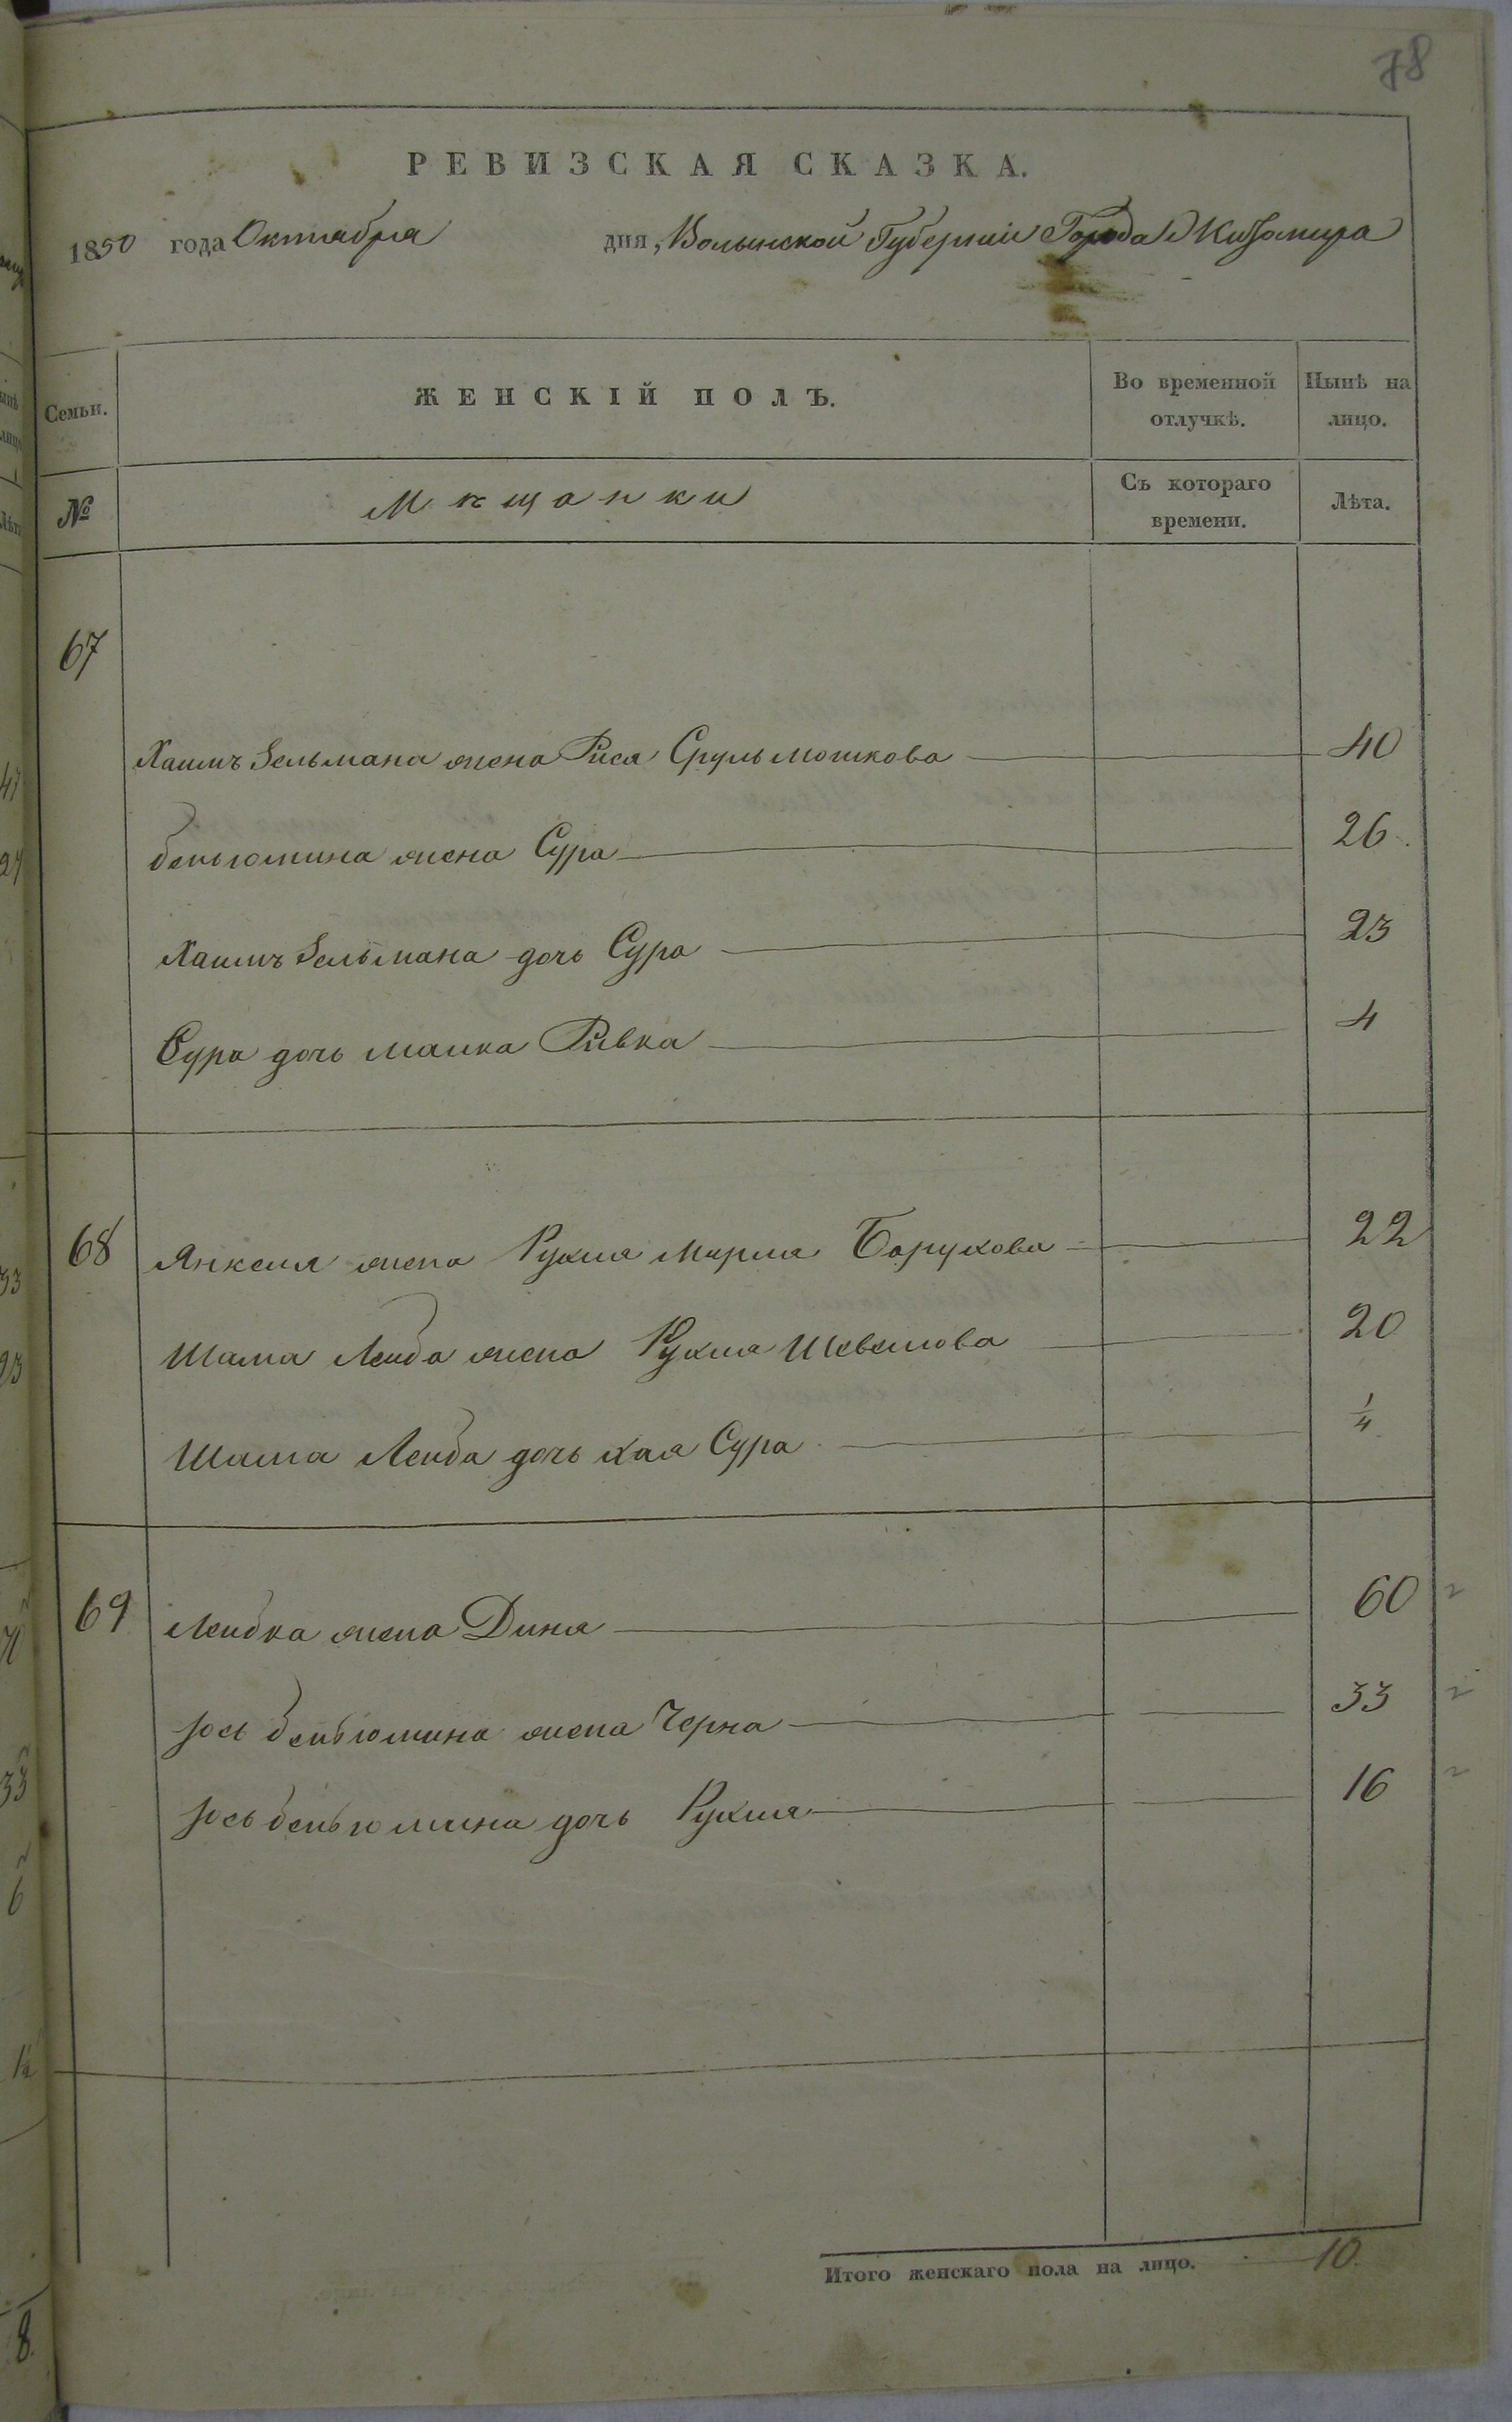 78
РЕВИЗСКАЯ СКАЗКА.
1850 года Октября дня, Волынской Губерніи Города Житомира
Семьи.
ЖЕНСКІЙ ПОЛЪ.
Во временной отлучкѣ.
Нынѣ на лицо.
№
Мѣщанки
Съ котораго времени.
Лѣта.
67
Хаимъ Зельмана жена Рися Сруль Мошкова 40
беньюмина жена Сура 26
Хаимъ Зельмана дочь Сура 23
Сура дочь Малка Ривка 4
68 Янкеля жена Рухля Мирля Борухова 22
Шама Лейба жена Рухля Шевелова 20
Шама Лейба дочь Хая Сура 1/4
69 Лейбка жена Дина 60
Iось беньюмина жена Черна 33
Iось беньюмина дочь Рухля 16
Итого женскаго пола на лицо. 10.